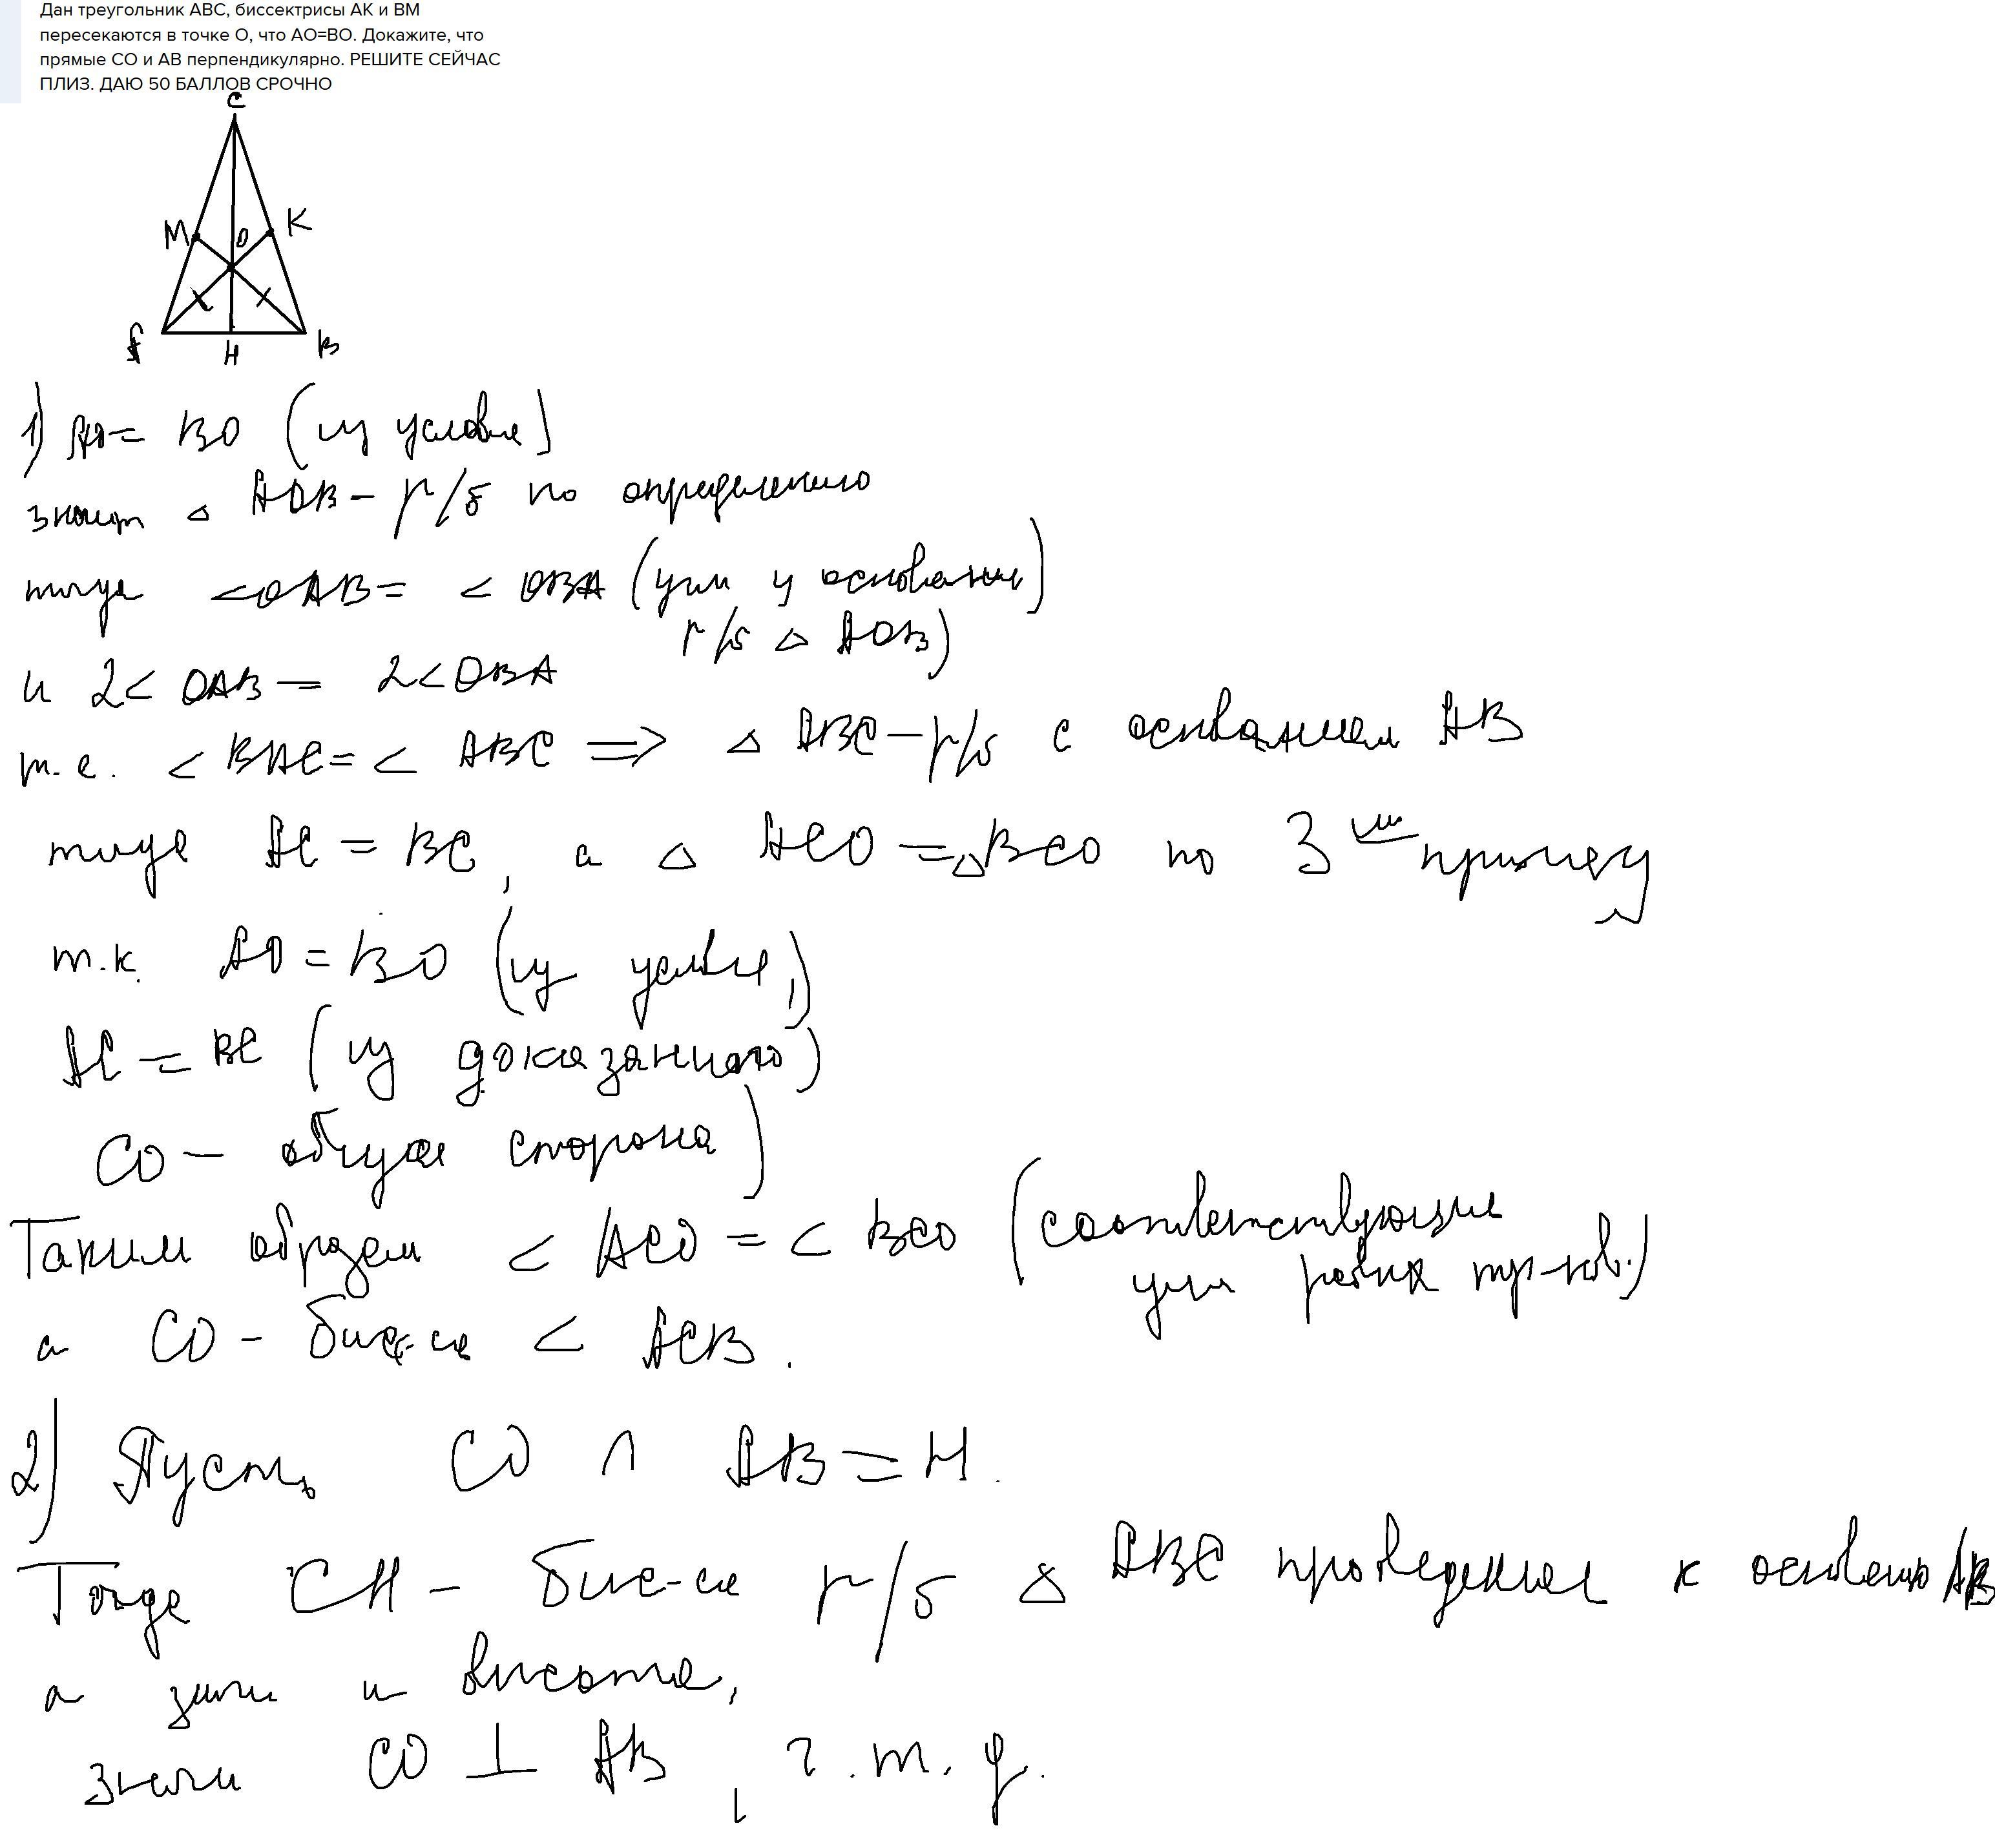 Дан треугольник ABC, биссектрисы АК и ВМ
пересекаются в точке О, что АО=ВО. Докажите, что
прямые СО и АВ перпендикулярно. РЕШИТЕ СЕЙЧАС
ПЛИЗ. ДАЮ 50 БАЛЛОВ СРОЧНО
C
M
O
K
A
H
B
1) AO = BO (из условия)
значит △ AOB - р/б по определению
тогда < OAB = < OBA (углы у основания
р/б △ AOB)
и 2< OAB = 2< OBA
т.е. < BAC = < ABC => △ ABC - р/б с основанием AB
тогда AC = BC, а △ ACO = △ BCO по 3 ему признаку
т.к. AO = BO (из условия,)
AC = BC (из доказанного)
CO - общая сторона)
Таким образом < ACO = < BCO (соответствующие
углы равных тр-ков.)
а CO - бисс-са < ACB.
2) Пусть CO ∩ AB = H.
Тогда CH - бис-са р/б △ ABC проведенная к основанию AB
а значит и высота,
значит CO ⊥ AB, ч.т.д.